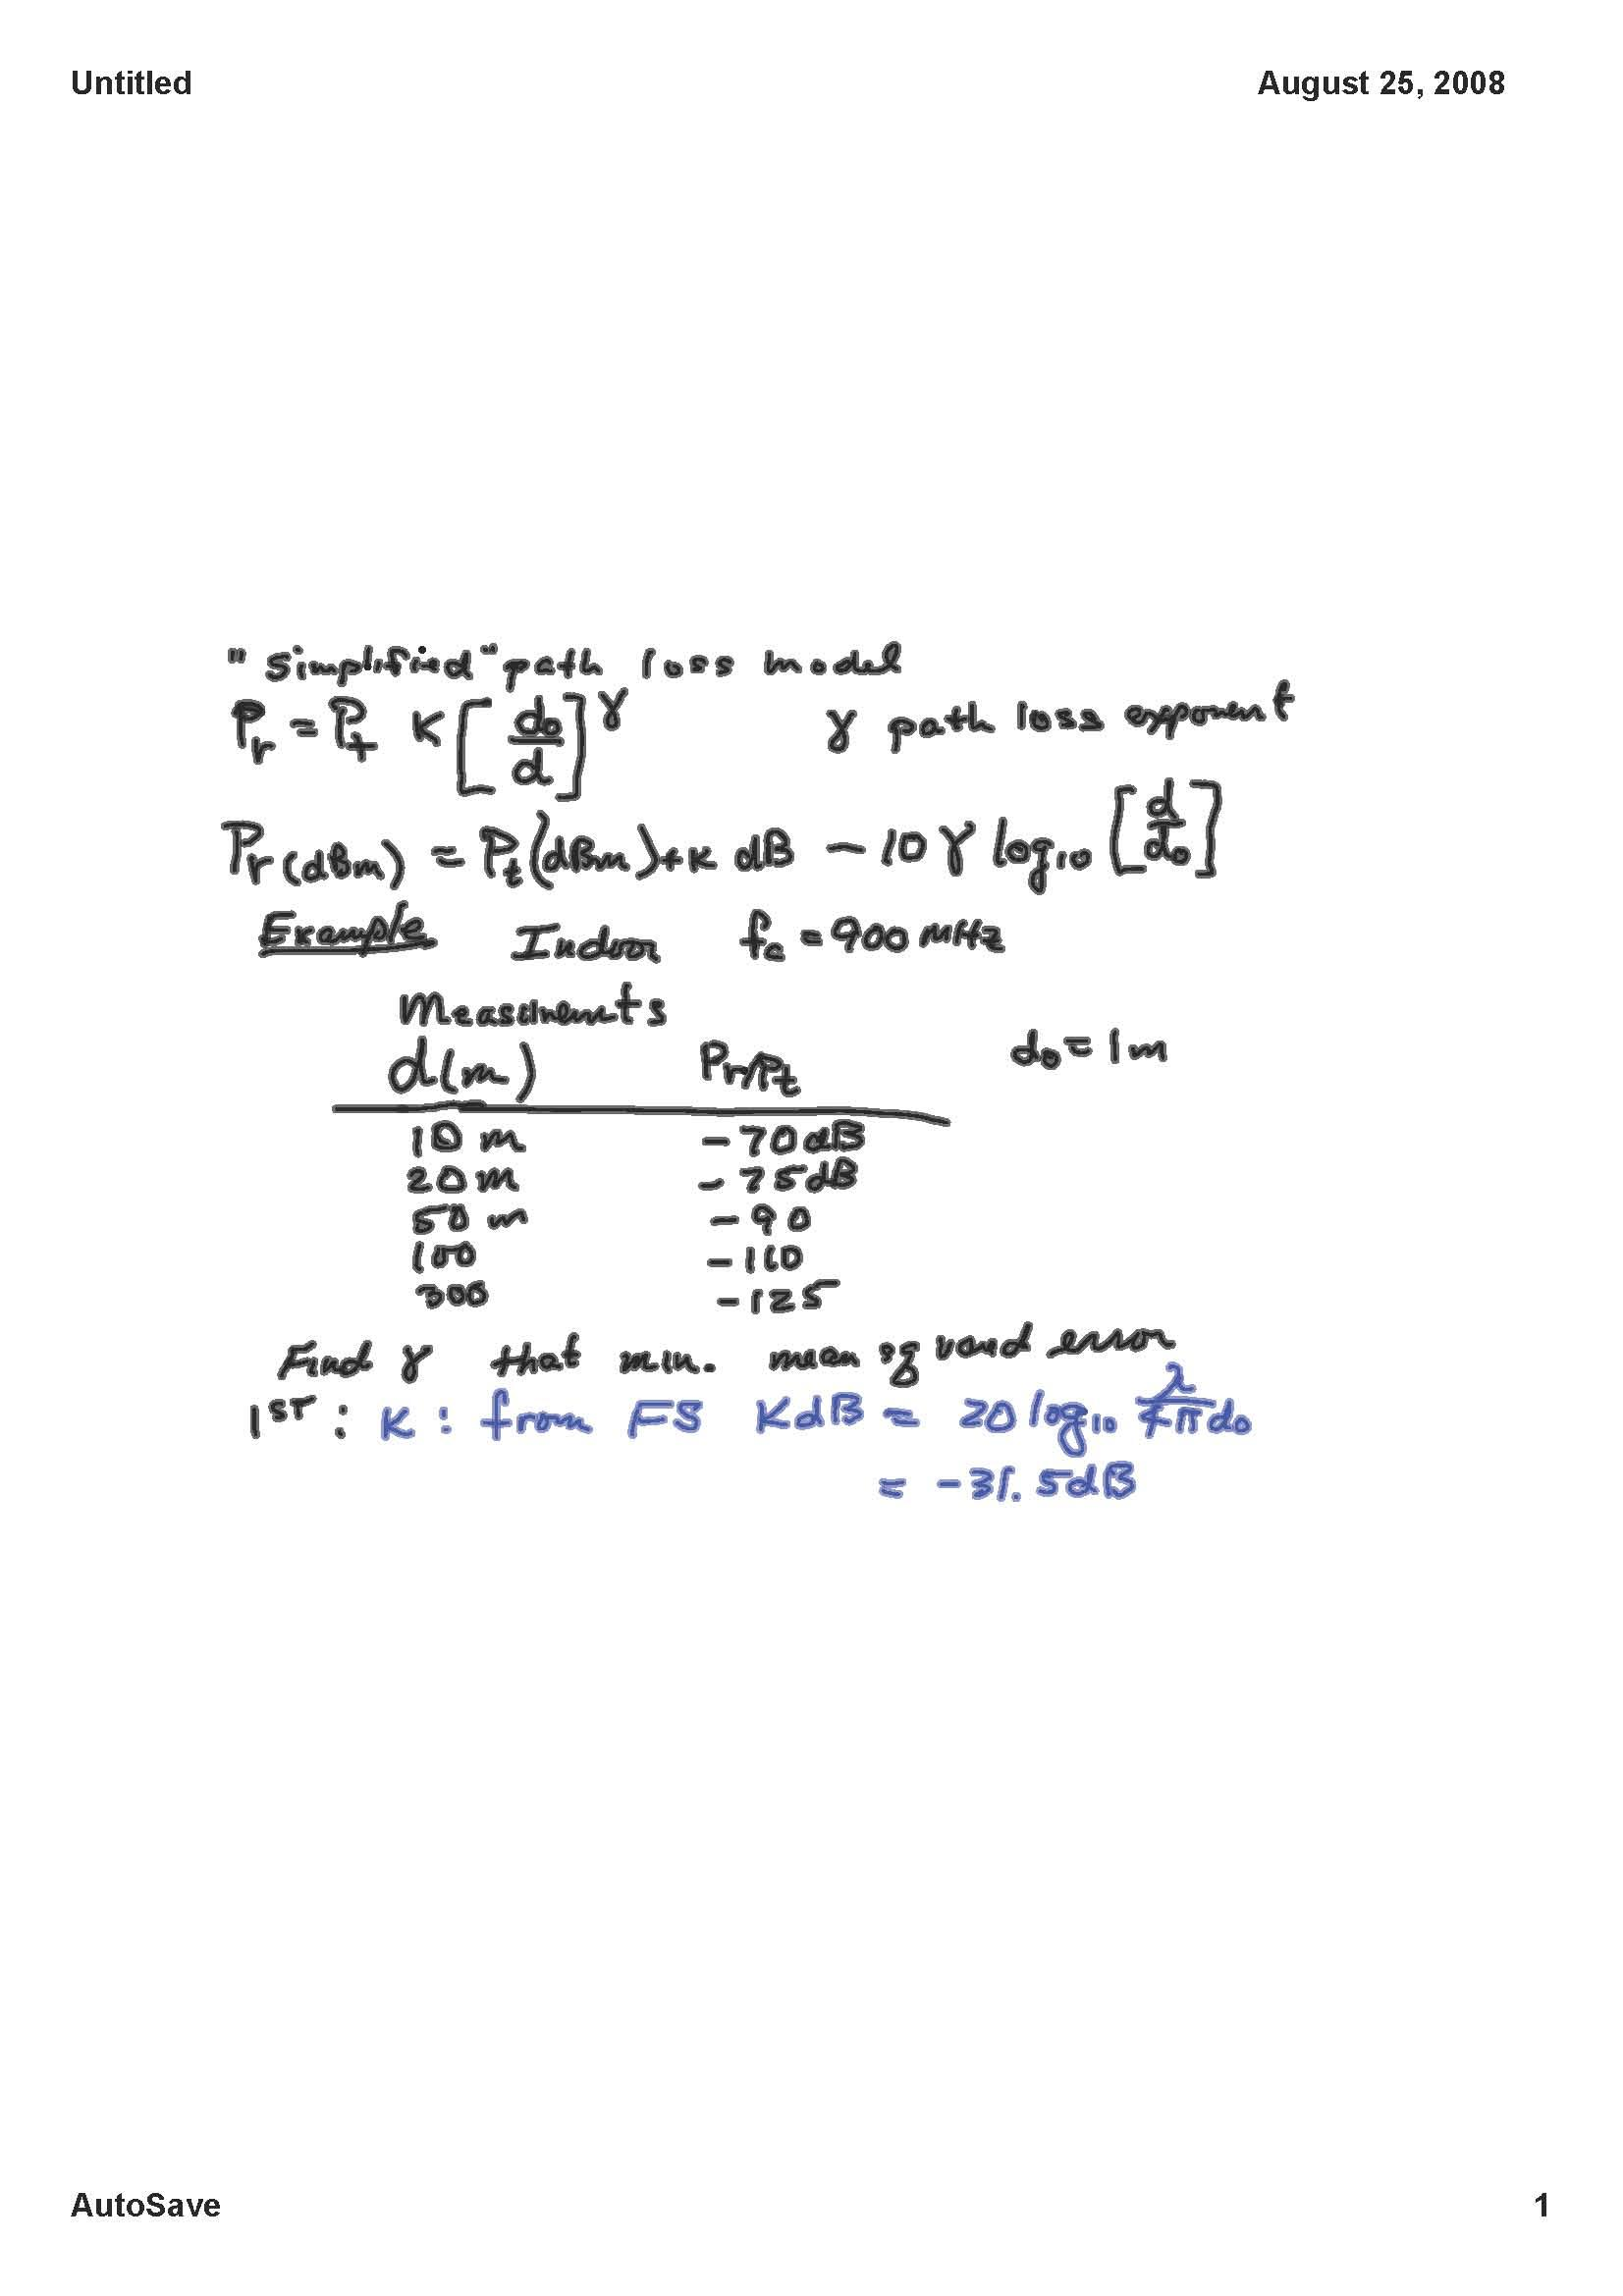 Untitled
August 25, 2008
"simplified" path loss model
Pr = Pt K [d0/d]^γ γ path loss exponent
Pr(dBm) = Pt(dBm) + K dB - 10 γ log10 [d/d0]
Example Indoor fc = 900 MHz
Measurments
d(m) Pr/Pt d0 = 1m
10 m -70 dB
20 m -75 dB
50 m -90
100 -110
300 -125
Find γ that min. mean squared error
1ST: K: from FS KdB = 20 log10 λ/4πd0
= -31.5dB
AutoSave
1